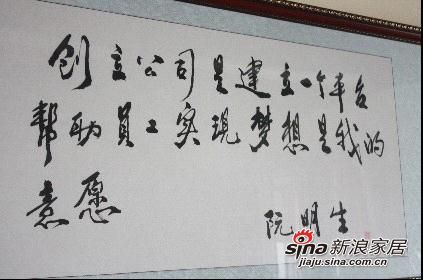 创立公司是建立一个平台
帮助员工实现梦想是我的
意愿
阮明生
sina新浪家居
jiaju.sina.com.cn